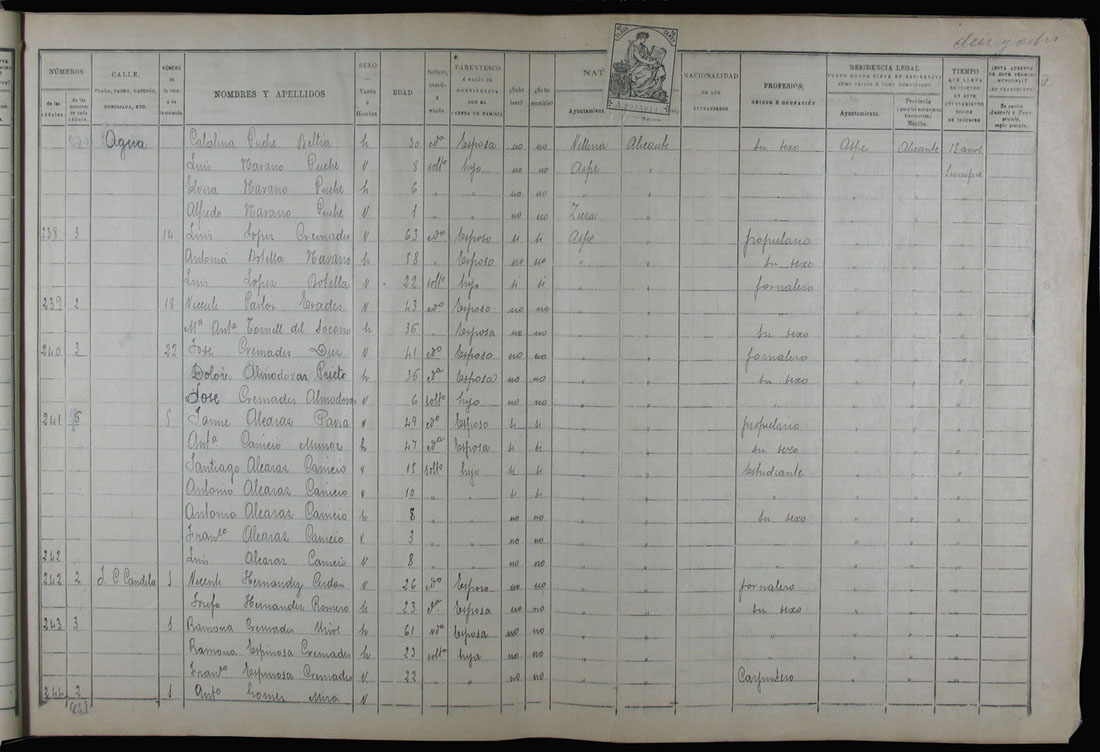 NÚMEROS
de las cédulas. de las personas de cada cédula.
CALLE,
PLAZA, PASEO, CASERÍO, CORTIJADA, ETC.
NÚMERO de la casa
NOMBRES Y APELLIDOS
SEXO — Varón ó Hembra
EDAD
Soltero, casado ó viudo.
PARENTESCO Ó RAZÓN DE CONVIVENCIA CON EL CABEZA DE FAMILIA
¿Sabe leer? ¿Sabe escribir?
NAT
Ayuntamiento.
NACIONALIDAD DE LOS EXTRANJEROS
PROFESIÓN, OFICIO Ó OCUPACIÓN
RESIDENCIA LEGAL
Ayuntamiento. Provincia Nación.
TIEMPO QUE LLEVA
Agua Catalina Puche Beltra h 30 cda Esposa no no Villena Alicante Su sexo Aspe Alicante 12 años
Luis Navarro Puche V 8 solto hijo no no Aspe " " " " Siempre
Elvira Navarro Puche h 6 " " no no " "
Alfredo Navarro Puche V 1 " " no no "
238 3 14 Luis Lopez Cremades V 63 cdo Esposo si si Aspe " propietario
Antonia Botella Navarro h 58 " Esposa no no " " Su sexo
Luis Lopez Botella V 22 solto hijo si si " " Jornalero
239 2 18 Vicente Pastor Erades V 43 cdo Esposo no no " "
Ma Anta Tornell del Socorro h 36 " Esposa no no " " Su sexo
240 3 22 Jose Cremades Diez V 41 cdo Esposo no no " " Jornalero
Dolores Almodovar h 36 cda Esposa no no " " Su sexo
Jose Cremades Almodovar V 6 solto hijo no no " "
241 6 5 Jaime Alcaraz Pavia V 49 cdo Esposo si si " " propietario
Anta Canicio Muñoz h 47 cda Esposa si si " " Su sexo
Santiago Alcaraz Canicio V 15 solto hijo si si " " Estudiante
Antonio Alcaraz Canicio V 10 " " si si " " "
Antonia Alcaraz Canicio h 8 " " no no " " Su sexo
Franco Alcaraz Canicio V 3 " " no no " "
242 Luis Alcaraz Canicio V 8 " " no no " "
242 2 J. C Candela 1 Vicente Hernandez Cerdan V 26 cdo Esposo no no " " Jornalero
Josefa Hernandez Romero h 23 cda Esposa no no " " Su sexo
243 3 1 Ramona Cremades Urios h 61 vda Esposa no no " "
Ramona Espinosa Cremades h 23 solto hija no no " "
Franco Espinosa Cremades V 22 " " no no " " Carpintero
244 2 1 Anto Gomez Mira V